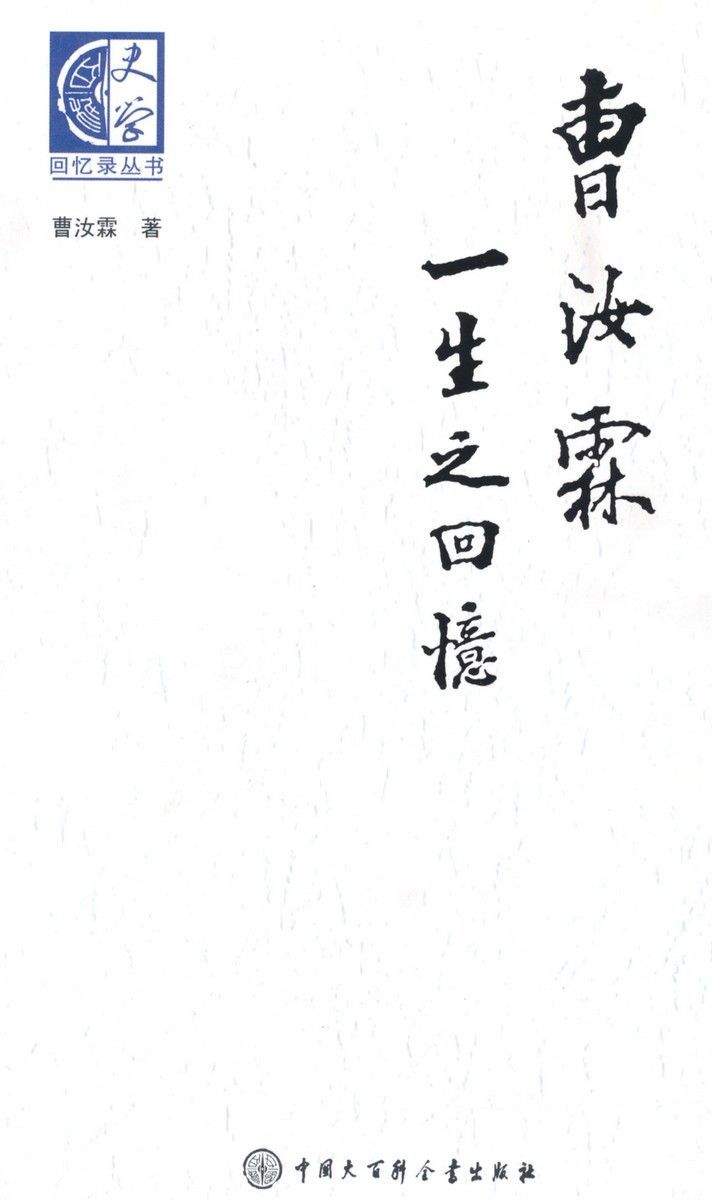 史学
回忆录丛书
曹汝霖　著
曹汝霖
一生之回憶
中国大百科全书出版社